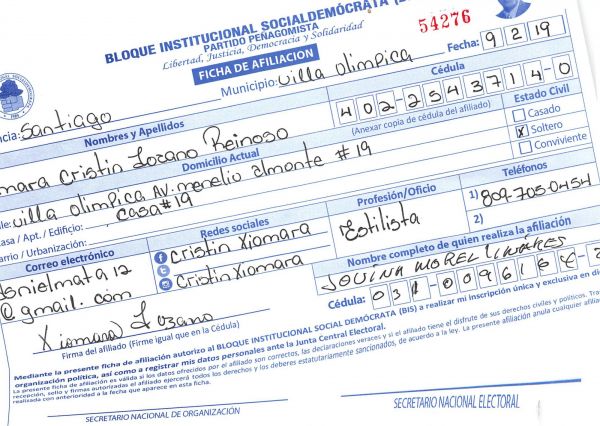 BLOQUE INSTITUCIONAL SOCIALDEMÓCRATA
PARTIDO PEÑAGOMISTA
Libertad, Justicia, Democracia y Solidaridad
54276
FICHA DE AFILIACION
Fecha: 9 2 19
Municipio: Villa Olimpica
Santiago
Cédula
402-2543714-0
(Anexar copia de cédula del afiliado)
Estado Civil
Casado
X Soltero
Conviviente
Nombres y Apellidos
Cristin Lozano Reinoso
Domicilio Actual
Villa Olimpica AV. menelio almonte #19
Apt. / Edificio: Casa #19
Urbanización:
Teléfonos
1) 809-705-0454
2)
Profesión/Oficio
Estilista
Redes sociales
Cristin Xiomara
Cristin Xiomara
Correo electrónico
@gmail.com
Nombre completo de quien realiza la afiliación
Cédula: 031-009616
Xiomara Lozano
Firma del afiliado (Firme igual que en la Cédula)
Mediante la presente ficha de afiliación autorizo al BLOQUE INSTITUCIONAL SOCIAL DEMÓCRATA (BIS) a realizar mi inscripción única y exclusiva en
organización política, así como a registrar mis datos personales ante la Junta Central Electoral.
La presente ficha de afiliación es válida si los datos ofrecidos por el afiliado son correctos, las declaraciones veraces y si el afiliado tiene el disfrute de sus derechos civiles y políticos.
recepción, sello y firmas autorizadas el afiliado ejercerá todos los derechos y los deberes estatutariamente sancionados, de acuerdo a la ley. La presente afiliación anula cualquier
realizada con anterioridad a la fecha que aparece en esta ficha.
SECRETARIO NACIONAL DE ORGANIZACIÓN
SECRETARIO NACIONAL ELECTORAL